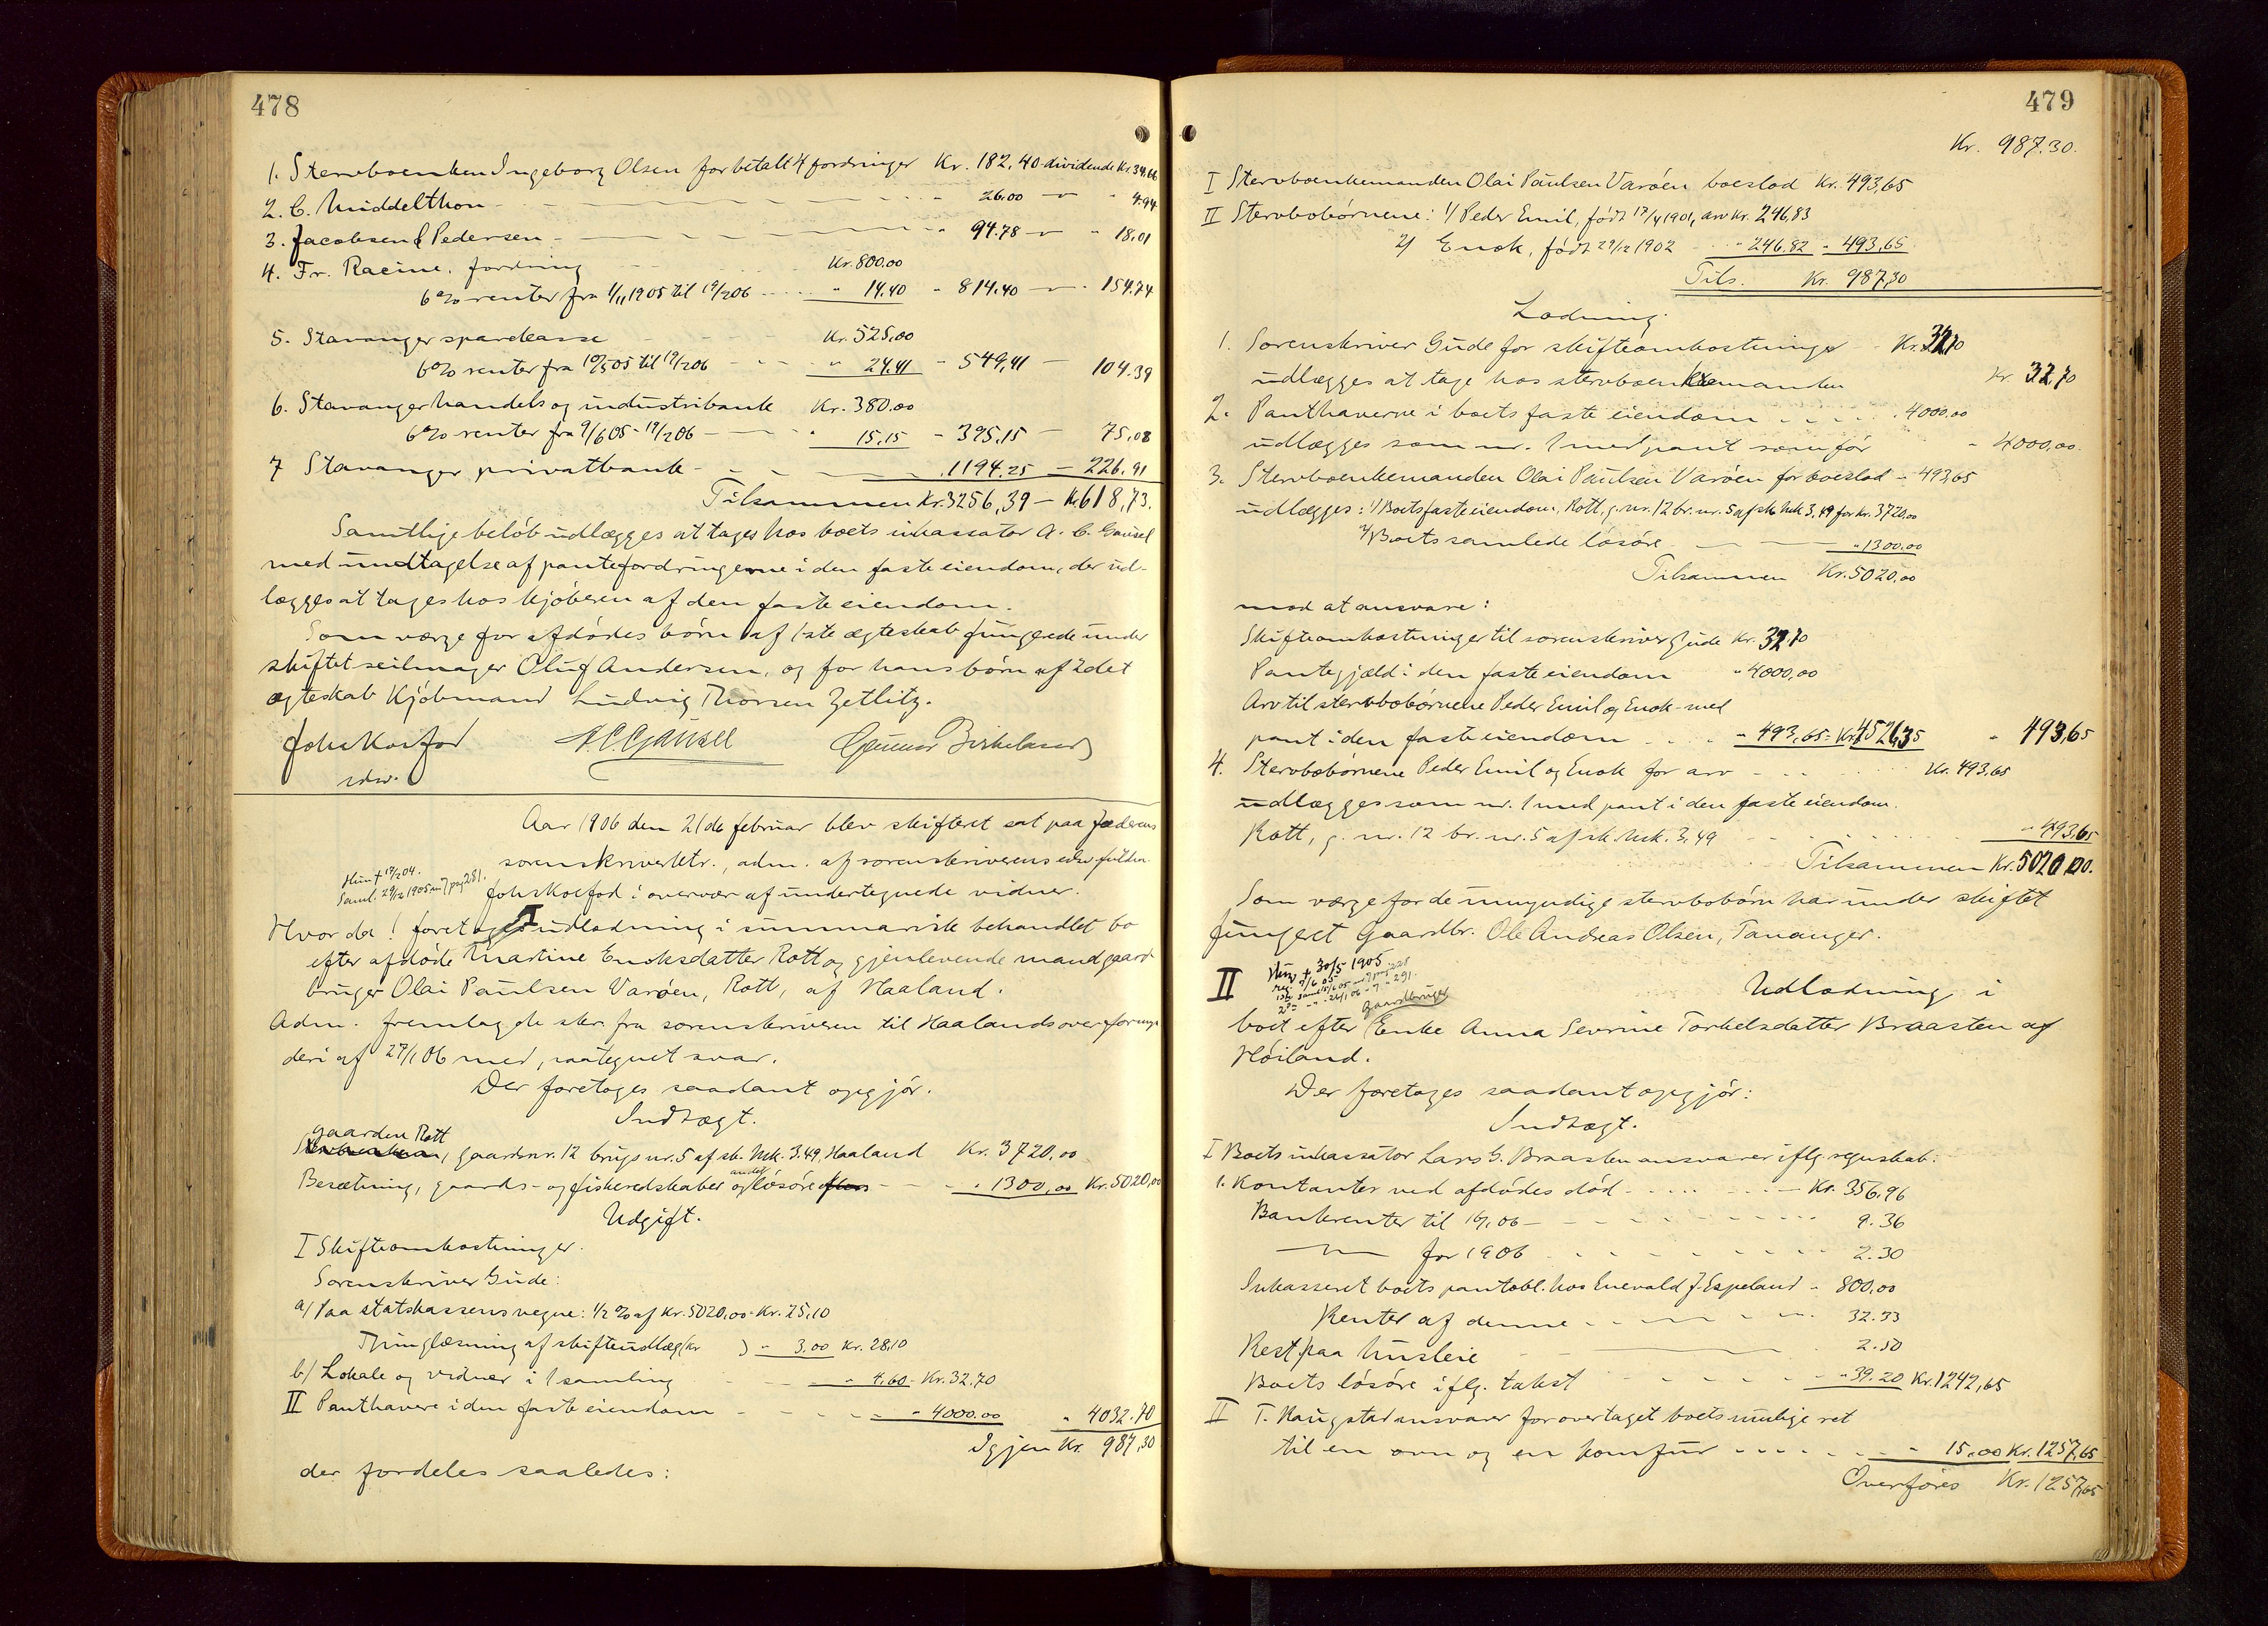 478
1. Stervboenken Ingeborg Olsen for betalt 4 fordringer Kr. 182,40 dividende Kr. 34,66
2. C. Middelthon - - - - " 26.00 — " 4.94
3. Jacobsen & Pedersen - - - " 94.78 — " 18.01
4. Fr. Racine, fordring Kr. 800.00
6% renter fra 1/11 1905 til 19/2 06 - - " 14.40 - 814.40 — " 154.74
5. Stavanger sparekasse Kr. 525,00
6% renter fra 10/5 05 til 19/2 06 - - " 24.41 - 549,41 — 104.39
6. Stavanger handels og industribank Kr. 380.00
6% renter fra 9/6 05 - 19/2 06 - " 15.15 - 395.15 — 75,08
7 Stavanger privatbank - - - 1194.25 — 226.91
Tilsammen Kr. 3256,39 — Kr. 618,73.
Samtlige beløb udlægges at tages hos boets inkassator A. C. Gausel
med undtagelse af pantefordringerne i den faste eiendom, der ud-
lægges at tages hos kjøberen af den faste eiendom.
Som værge for afdødes børn af 1ste ægteskab fungerede under
skiftet seilmager Oluf Andersen, og for hans børn af 2det
ægteskab Kjøbmand Ludvig Thorsen Zetlitz.
Joh Koefod A C Gausel Gunnar Birkeland
edsv.
Aar 1906 den 21de februar blev skifteret sat paa Jæderens
sorenskriverktr., adm. af sorenskriverens edsv. fuldm.
Hun † 19/2 04.
Saml. 29/12 1905 pag 281.
Joh Koefod i overvær af undertegnede vidner.
Hvor da! foretages I udlodning i summarisk behandlet bo
efter afdøde Martine Enoksdatter Rott og gjenlevende mand gaard-
bruger Olai Paulsen Varøen, Rott, af Haaland.
Adm. fremlagde skr. fra sorenskriveren til Haalands overformyn-
deri af 27/1 06 med paategnet svar.
Der foretages saadant opgjør.
Indtægt.
gaarden Rott
, gaardsnr. 12 brugsnr. 5 af sk. Mk. 3.49, Haaland Kr. 3720,00
Besætning, gaards- og fiskeredskaber og andet løsøre - - " 1300,00 Kr. 5020,00
Udgift.
I Skifteomkostninger.
Sorenskriver Gude:
a/ Paa statskassens vegne: 1/2 % af Kr. 5020,00 = Kr. 25,10
Thinglæsning af skifteudlæg (Kr ) - 3.00 Kr. 28,10
b/ Lokale og vidner i 1 samling - - " 4.60 - Kr. 32.70
II Panthavere i den faste eiendom - - - - " 4000.00 " 4032.70
Igjen Kr. 987,30
der fordeles saaledes:
479
Kr. 987.30.
I Stervboenkemanden Olai Paulsen Varøen boeslod Kr. 493,65
II Stervbobørnene: 1/ Peder Emil, født 17/4 1901, arv Kr. 246,83
2/ Enok, født 29/12 1902 - - " 246.82 - 493,65
Tils. Kr. 987,30
Lodning.
1. Sorenskriver Gude for skifteomkostninger Kr. 32,70
udlægges at tage hos stervboenkemanden Kr. 32,70
2. Panthaverne i boets faste eiendom . . . . 4000,00
udlægges som nr. 1 med pant som før - 4000,00.
3. Stervboenkemanden Olai Paulsen Varøen for boeslod - 493,65
udlægges: 1/ Boets faste eiendom, Rott, g. nr. 12 br. nr. 5 af sk. Mk 3,49 for Kr. 3720,00
2/ Boets samlede løsøre - - - " 1300.00
Tilsammen Kr. 5020,00
mod at ansvare:
Skifteomkostninger til sorenskriver Gude Kr. 32,70
Pantegjæld i den faste eiendom " 4000,00
Arv til stervbobørnene Peder Emil og Enok - med
pant i den faste eiendom . . . - 493,65 = Kr. 4526,35 " 493,65
4. Stervbobørnene Peder Emil og Enok for arv - - - Kr. 493,65
udlægges som nr. 1 med pant i den faste eiendom.
Rott, g. nr. 12 br. nr. 5 af sk. Mk. 3,49 - - - " 493,65
Tilsammen Kr. 5020,00.
Som værge for de umyndige stervbobørn har under skiftet
fungeret Gaardbr. Ole Andreas Olsen, Tananger.
II Hun † 30/5 1905
reg. 9/6 05
Udlodning i
gaardbruger
boet efter Enke Anna Sevrine Torkelsdatter Braasten af
Høiland.
Der foretages saadant opgjør:
Indtægt.
I Boets inkassator Lars G. Braasten ansvarer iflg. regnskab:
1. Kontanter ved afdødes død - - - Kr. 356.96
Bankrenter til 1/1 06 - - - 9.36
— " — for 1906 - - - 2.30
Inkasseret boets pantobl. hos Enevald J. Espeland - 800,00
Renter af denne - - - 32.33
Rest paa husleie 2.50
Boets løsøre iflg. takst - - - " 39.20 Kr. 1242,65
II T. Haugstad ansvarer for overtaget boets mulige ret
til en ovn og en komfur - - - " 15,00 Kr. 1257,65
Overføres Kr. 1257,65